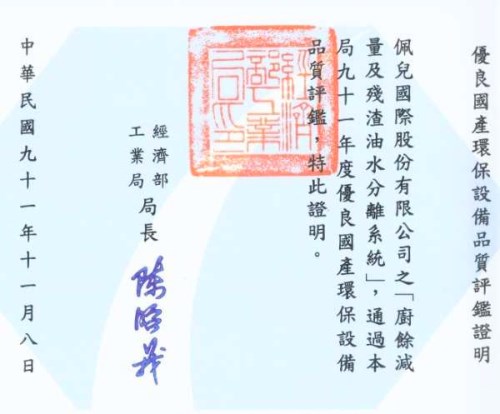 優良國產環保設備品質評鑑證明
佩兒國際股份有限公司之「廚餘減
量及殘渣油水分離系統」，通過本
局九十一年度優良國產環保設備
品質評鑑，特此證明。
經濟部
工業局
局長
陳昭義
中華民國九十一年十一月八日
經濟部工業局印